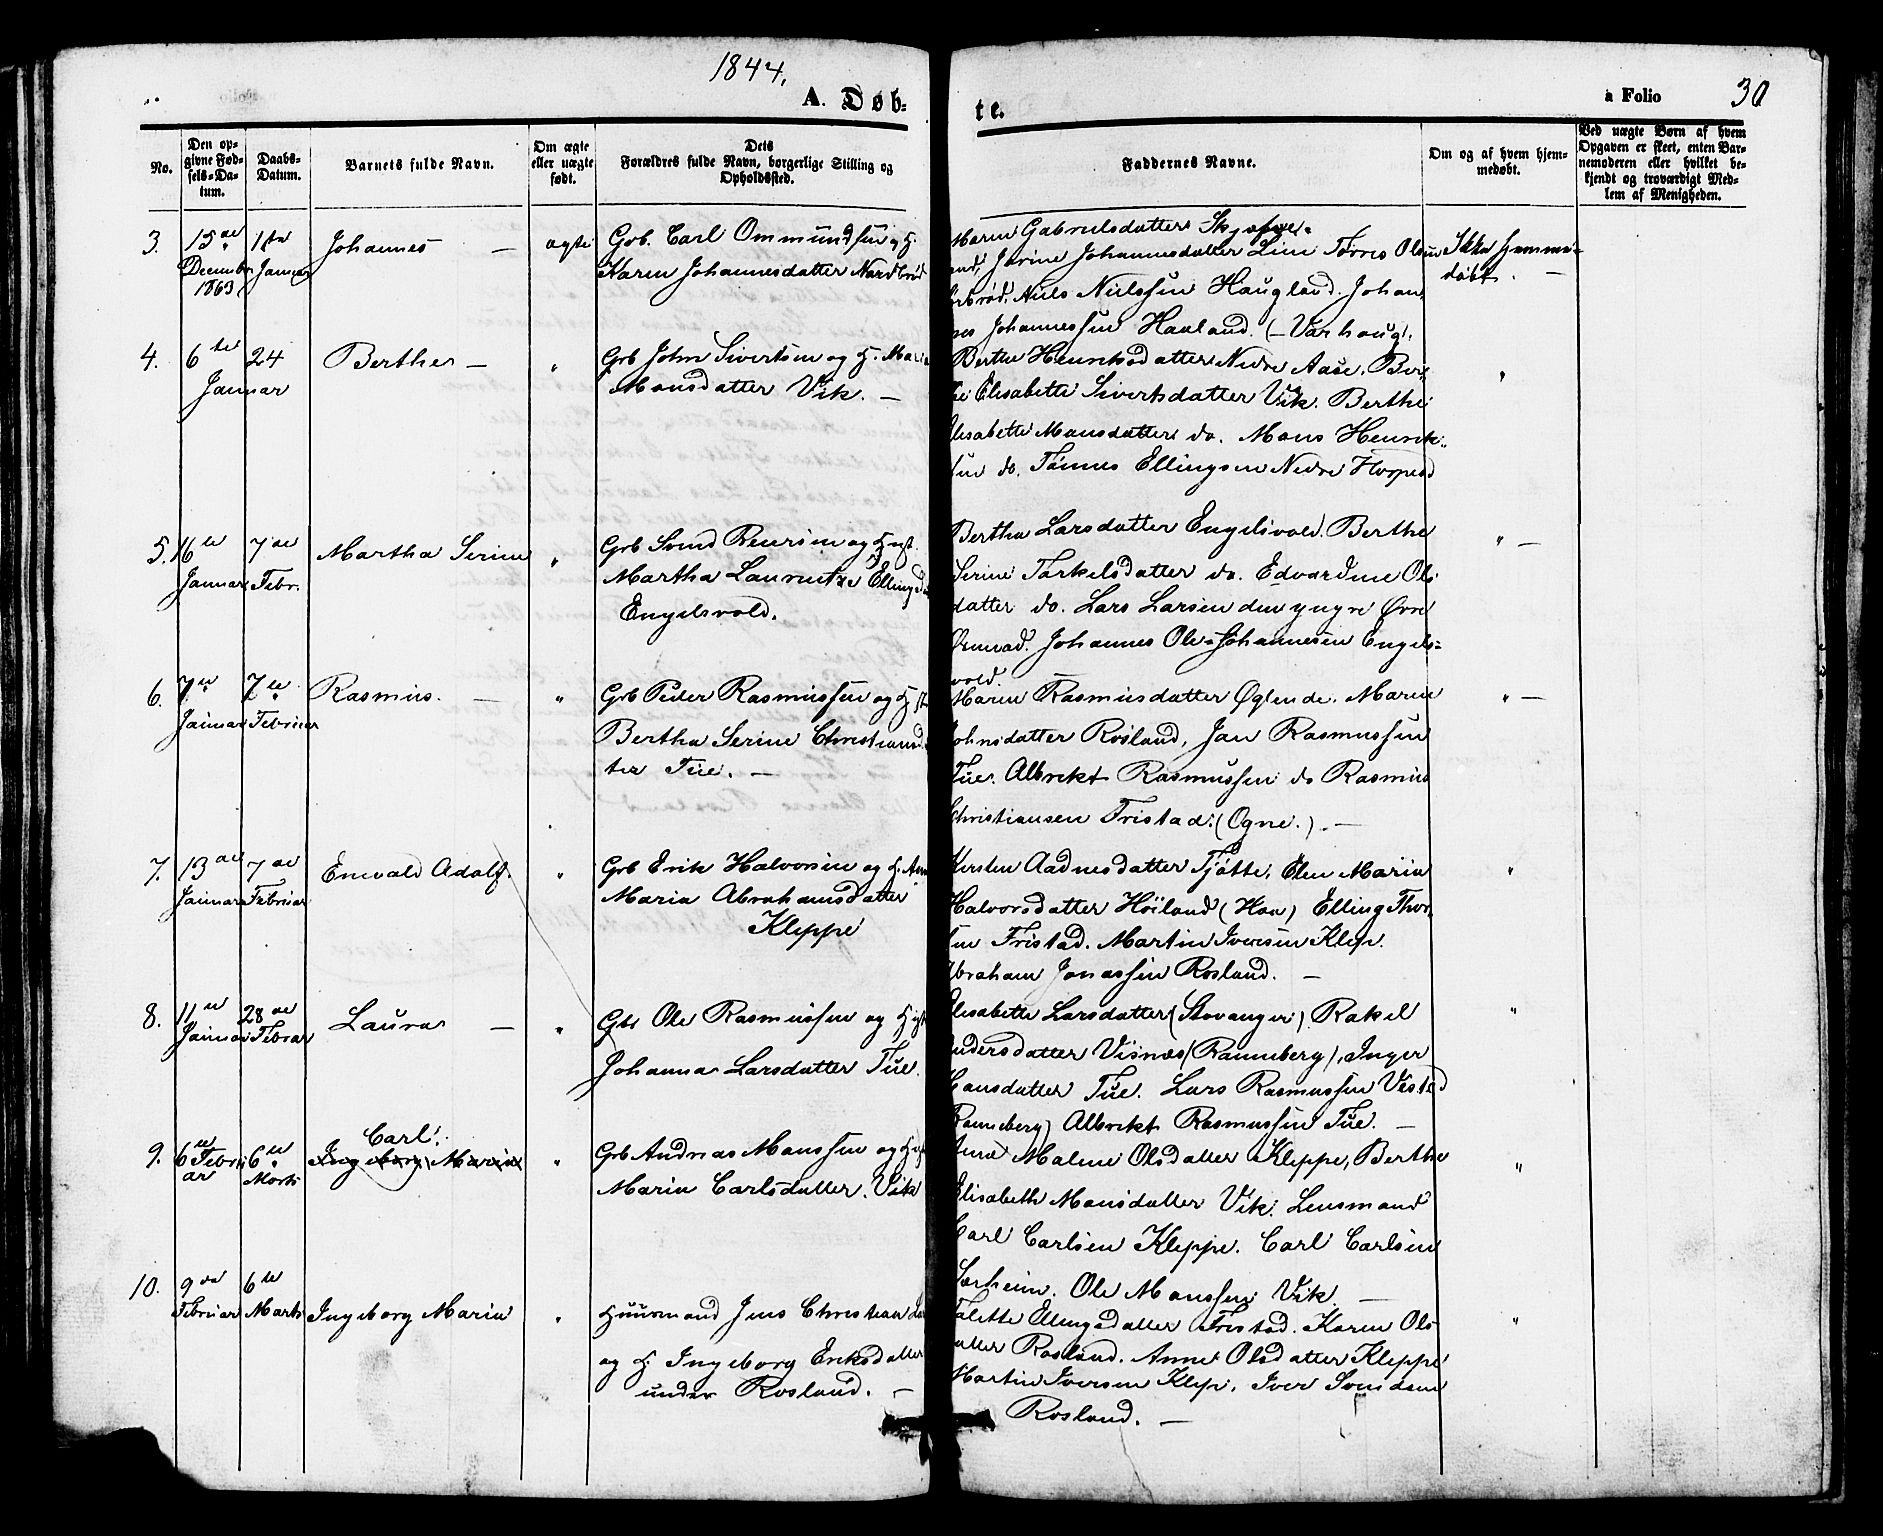 1844.
A. Døb-
te.
a Folio
30
No.
Den op-
givne Fød-
sels-Da-
tum.
Daabs-
Datum.
Barnets fulde Navn.
Om ægte
eller uægte
født.
Dets
Forældres fulde Navn, borgerlige Stilling og
Opholdssted.
Faddernes Navne.
Om og af hvem hjem-
medøbt.
Ved uægte Børn af hvem
Opgaven er skeet, enten Bar-
nemoderen eller hvilket be-
kjendt og troværdigt Med-
lem af Menigheden.
3.
15de
Decembr
1863
1ste
Januar
Johannes —
ægte
Grb. Carl Ommundsen og H.
Karen Johannesdatter Nordbrød
Maren Gabrielsdatter Skjæve-
land, Jorine Johannesdatter Line Tørres Olsen
Niels Nielssen Haugland. Johan-
nes Johannessen Haaland. (Varhaug).
Ikke hjemme-
døbt. —
4.
6te
Januar
24
Berthe —
"
Grb John Sivertsen og H. Maria
Monsdatter Vik. —
Berthe Henriksdatter Nedre Aase, Ber-
the Elisabette Sivertsdatter Vik. Berthe
Elisabette Monsdatter do. Mons Henrik-
sen do. Tønnes Ellingsen Nedre
"
5.
16de
Januar
7de
Febr.
Martha Serine
"
Grb Svend Reiersen og Hust.
Martha Lauritze Ellingsd
Engelsvold.
Bertha Larsdatter Engelsvold. Berthe
Serine Torkelsdatter do. Edvardine Ols-
datter do. Lars Larsen den yngre Øvre
Johannes Ole Johannesen Engels-
vold.
" —
6.
7de
Januar
7de
Februar
Rasmus. —
"
Grb Peder Rasmussen og Hst
Bertha Serine Christiansd
ter Tue. —
Maren Rasmusdatter Øglende. Maren
Johnsdatter Rosland, Jan Rasmussen
Tue. Albrekt Rasmussen do Rasmus
Christiansen Fristad. (Ogne.). —
" —
7.
13de
Januar
7de
Februar
Enevald Adolf.
"
Grb Erik Halvorsen og H. Ann
Maria Abrahamsdatter
Kleppe
Kirsten Aadnesdatter Tjøtte, Elen Maria
Halvorsdatter Høiland (Haa) Elling Thor-
sen Fristad. Martin Iversen Klep.
Abraham Jonassen Rosland. —
"
8.
11te
Januar
28de
Februar
Laura —
"
Gbr Ole Rasmussen og Hust
Johanna Larsdatter Tue.
Elisabette Larsdatter (Stavanger). Rakel
Andersdatter Visnæs (Ranneberg), Inger
Hansdatter Tue. Lars Rasmussen Vistad
(Ranneberg) Albrekt Rasmussen Tue. —
"
9.
6te Febru
ar
6te
Marts
Carl.
Ingeborg Maria
"
Grb Andreas Monssen og Hust
Maria Carlsdatter. Vik
Anne Malene Olsdatter Kleppe, Berthe
Elisabeth Monsdatter Vik. Lensmand
Carl Carlsen Kleppe. Carl Carlsen
Sørheim. Ole Monssen Vik —
"
10.
9de
Februar
6te
Marts
Ingeborg Maria
"
Huusmand Jens Christian
og H. Ingeborg Eriksdatter
under Rosland. —
Talette Ellingsdatter Fristad. Karen Ols-
datter Rosland. Anne Olsdatter Kleppe
Martin Iversen Klep. Iver Svendsen
Rosland. —
"